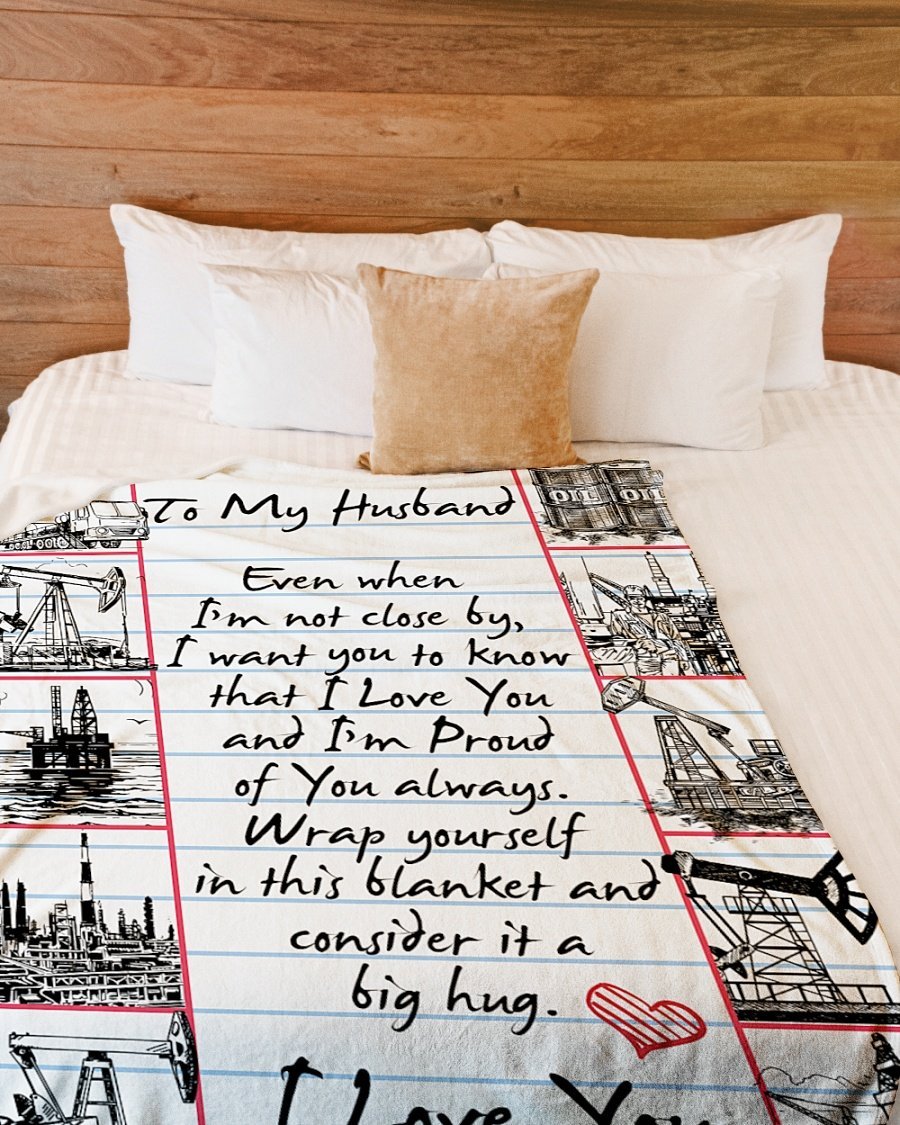 To My Husband
OIL OIL
Even when
I'm not close by,
I want you to know
that I Love You
and I'm Proud
of You always.
Wrap yourself
in this blanket and
consider it a
big hug.
I Love You